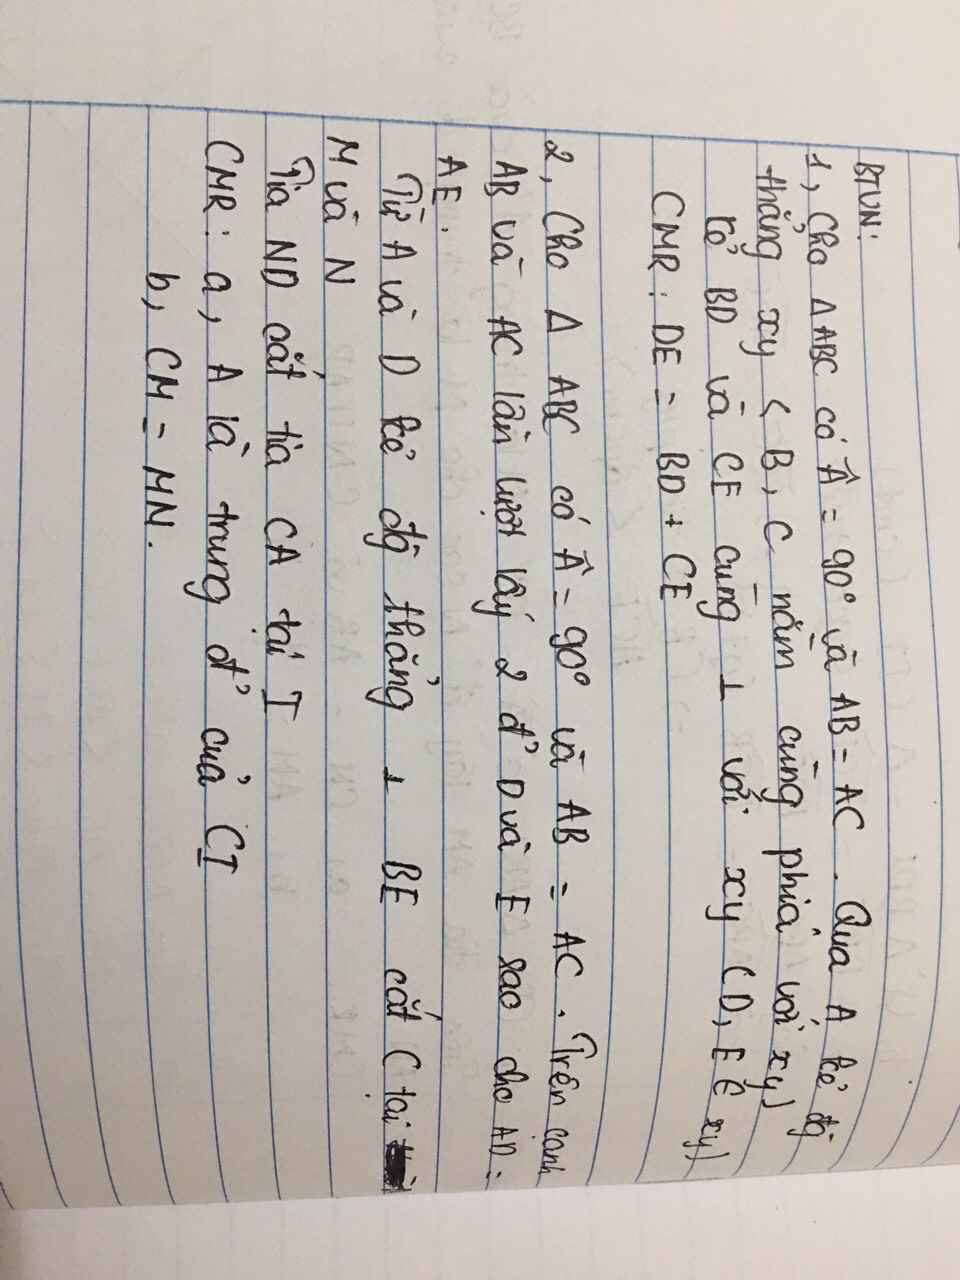 BTVN:
1, Cho Δ ABC có Â = 90° và AB = AC. Qua A kẻ đg
thẳng xy (B, C nằm cùng phía với xy)
kẻ BD và CE cùng ⊥ với xy (D, E ∈ xy)
CMR: DE = BD + CE
2, Cho Δ ABC có Â = 90° và AB = AC. Trên cạnh
AB và AC lần lượt lấy 2 đ' D và E sao cho AD =
AE.
Từ A và D kẻ đg thẳng ⊥ BE cắt C tại
M và N
Tia ND cắt tia CA tại I
CMR: a, A là trung đ' của CI
b, CM = MN.